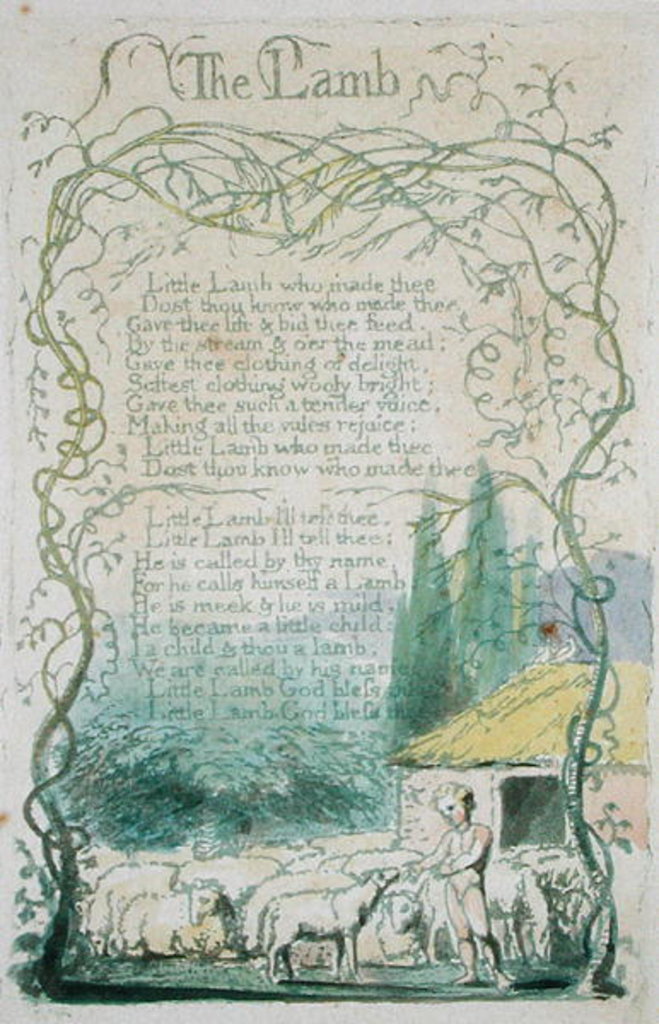 The Lamb
Little Lamb who made thee
Dost thou know who made thee
Gave thee life & bid thee feed.
By the stream & o'er the mead;
Gave thee clothing of delight,
Softest clothing wooly bright;
Gave thee such a tender voice,
Making all the vales rejoice:
Little Lamb who made thee
Dost thou know who made thee
Little Lamb I'll tell thee,
Little Lamb I'll tell thee;
He is called by thy name,
For he calls himself a Lamb:
He is meek & he is mild,
He became a little child:
I a child & thou a lamb,
We are called by his name
Little Lamb God bless
Little Lamb God bless